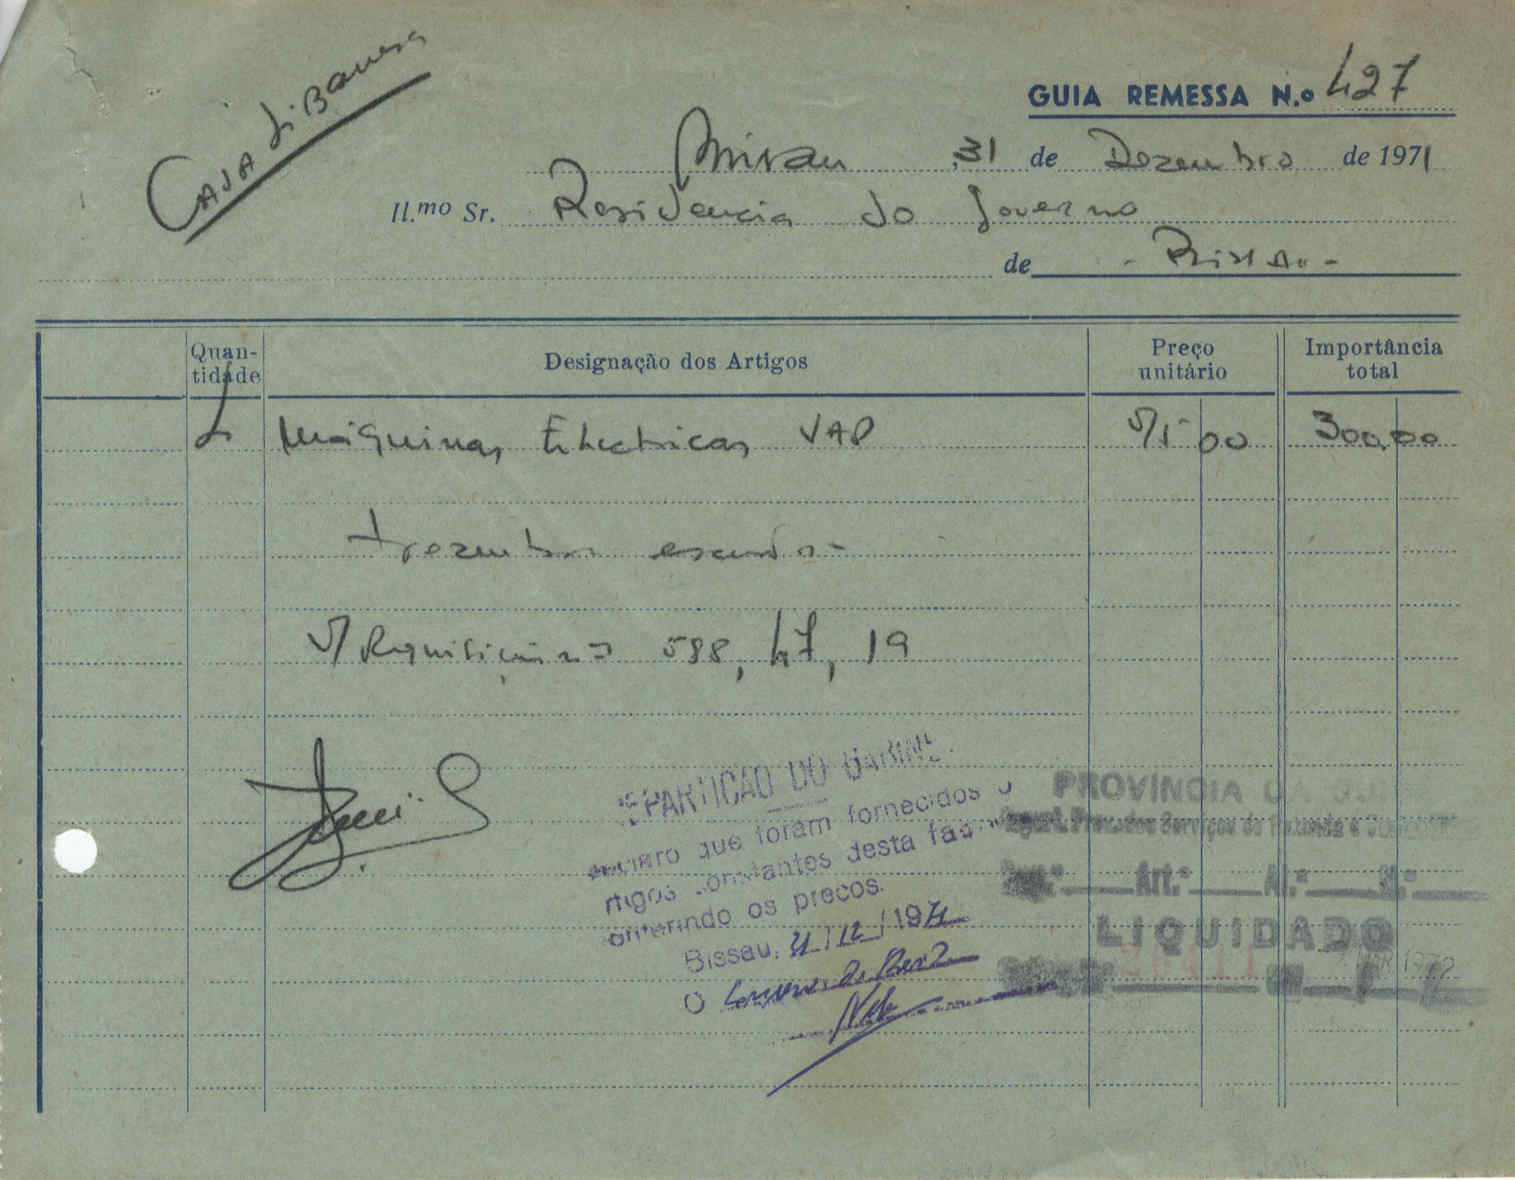 Casa Libanesa
GUIA REMESSA N.o 427
Bissau, 31 de Dezembro de 1971
Il.mo Sr. Residencia do Governo
de - Bissau -
Quantidade
Designação dos Artigos
Preço unitário
Importância total
2 Máquinas Eléctricas VAP 300,00
trezentos escudos -
V/ Requisição nº 588, 47, 19
REPARTICAO DO GABINE
que foram fornecidos o
constantes desta fac
os precos.
Bissau, 31/12/1971
O
PROVÍNCIA DA GUI
dos Serviços de Fazenda e
Art.º Al.ª N.º
LIQUIDADO
1972